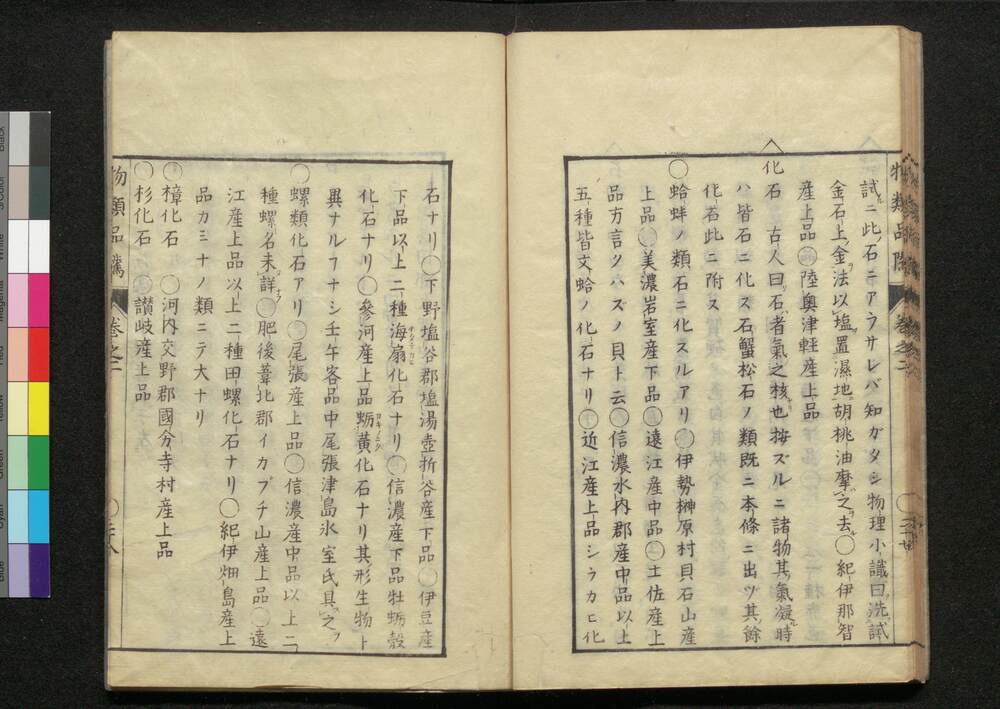 試ニ此ノ石ニアラサレバ知ガタシ物理小識曰洗試
金石上金法以塩置濕地胡桃油摩之去〇紀伊那智
産上品〇陸奥津軽産上品
化石 古人曰石者氣之核也按ズルニ諸物其氣凝時
ハ皆石ニ化ス石蟹松石ノ類既ニ本條ニ出ヅ其餘
化石此ニ附ス
〇蛤蚌ノ類石ニ化スルアリ〇伊勢榊原村貝石山産
上品〇美濃岩室産下品〇遠江産中品〇土佐産上
品方言ツハズノ貝ト云〇信濃水内郡産中品以上
五種皆文蛤ノ化石ナリ〇近江産上品シラカヒ化
石ナリ〇下野塩谷郡塩湯壺折谷産下品〇伊豆産
下品以上二種海扇化石ナリ〇信濃産下品牡蛎殻
化石ナリ〇參河産上品蛎黄化石ナリ其形生物ト
異ナルフナシ壬午客品中尾張津島氷室氏具之
〇螺類化石アリ〇尾張産上品〇信濃産中品以上二
種螺名未詳〇肥後葦北郡イカブチ山産上品〇遠
江産上品以上二種田螺化石ナリ〇紀伊畑島産上
品カミナノ類ニテ大ナリ
〇樟化石 〇河内交野郡國分寺村産上品
〇杉化石 〇讃岐産上品
物類品隲 巻之二